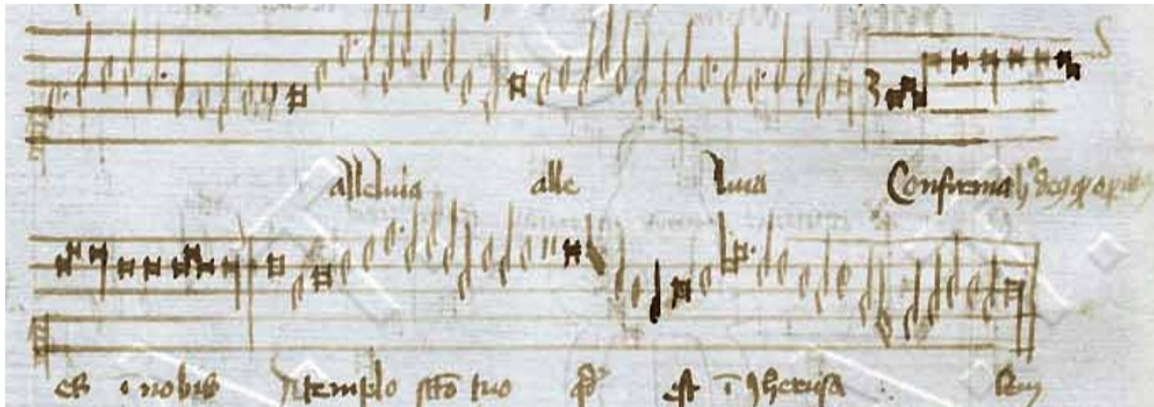 alleluia alle luia Confirma h deus
est i nobis A templo sto tuo qd est i Jherusa lem